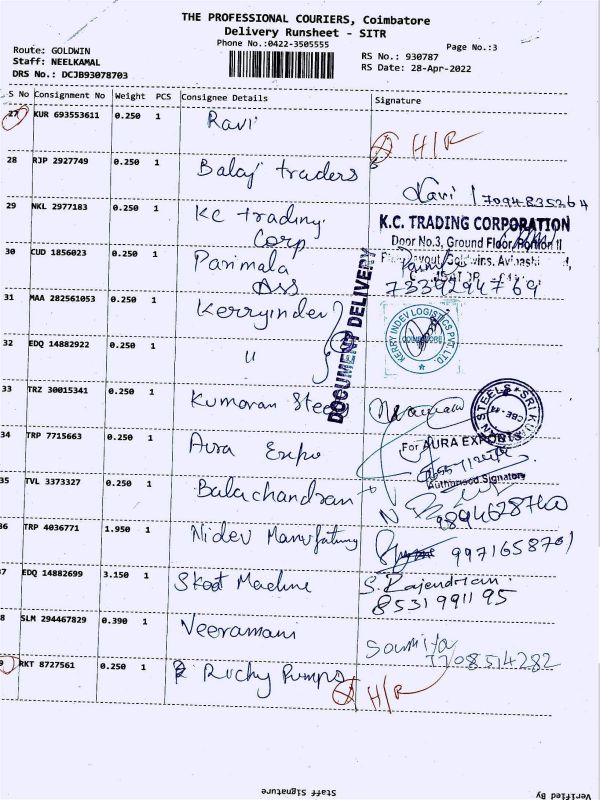 THE PROFESSIONAL COURIERS, Coimbatore
Delivery Runsheet - SITR
Phone No.:0422-3505555
Page No.:3
Route: GOLDWIN
Staff: NEELKAMAL
DRS No.: DCJB93078703
RS No.: 930787
RS Date: 28-Apr-2022
S No Consignment No Weight PCS Consignee Details Signature
27 KUR 693553611 0.250 1 Ravi H/R
28 RJP 2927749 0.250 1 Balaj traders Ravi 7094835264
29 NKL 2977183 0.250 1 Kc trading Corp
K.C. TRADING CORPORATION
Door No.3, Ground Floor, Portion II
30 CUD 1856023 0.250 1 Parimala Ass 7339294769
DOCUMENT DELIVERY
31 MAA 282561053 0.250 1 Kerryindev
KERRY INDEV LOGISTICS PVT. LTD
COIMBATORE
32 EDQ 14882922 0.250 1 "
33 TRZ 30015341 0.250 1 Kumaran Steels
34 TRP 7715663 0.250 1 Aura Expo
For AURA EXPORTS
Authorised Signatory
35 TVL 3373327 0.250 1 Balachandran
36 TRP 4036771 1.950 1 Nidev Manufatung 9971658701
37 EDQ 14882699 3.150 1 Skoot Machine S. Rajendrian. 8531991195
8 SLM 294467829 0.390 1 Veeramani Soumiya 7708514282
9 RKT 8727561 0.250 1 Ruchy Pumps H/R
Staff Signature
Verified By